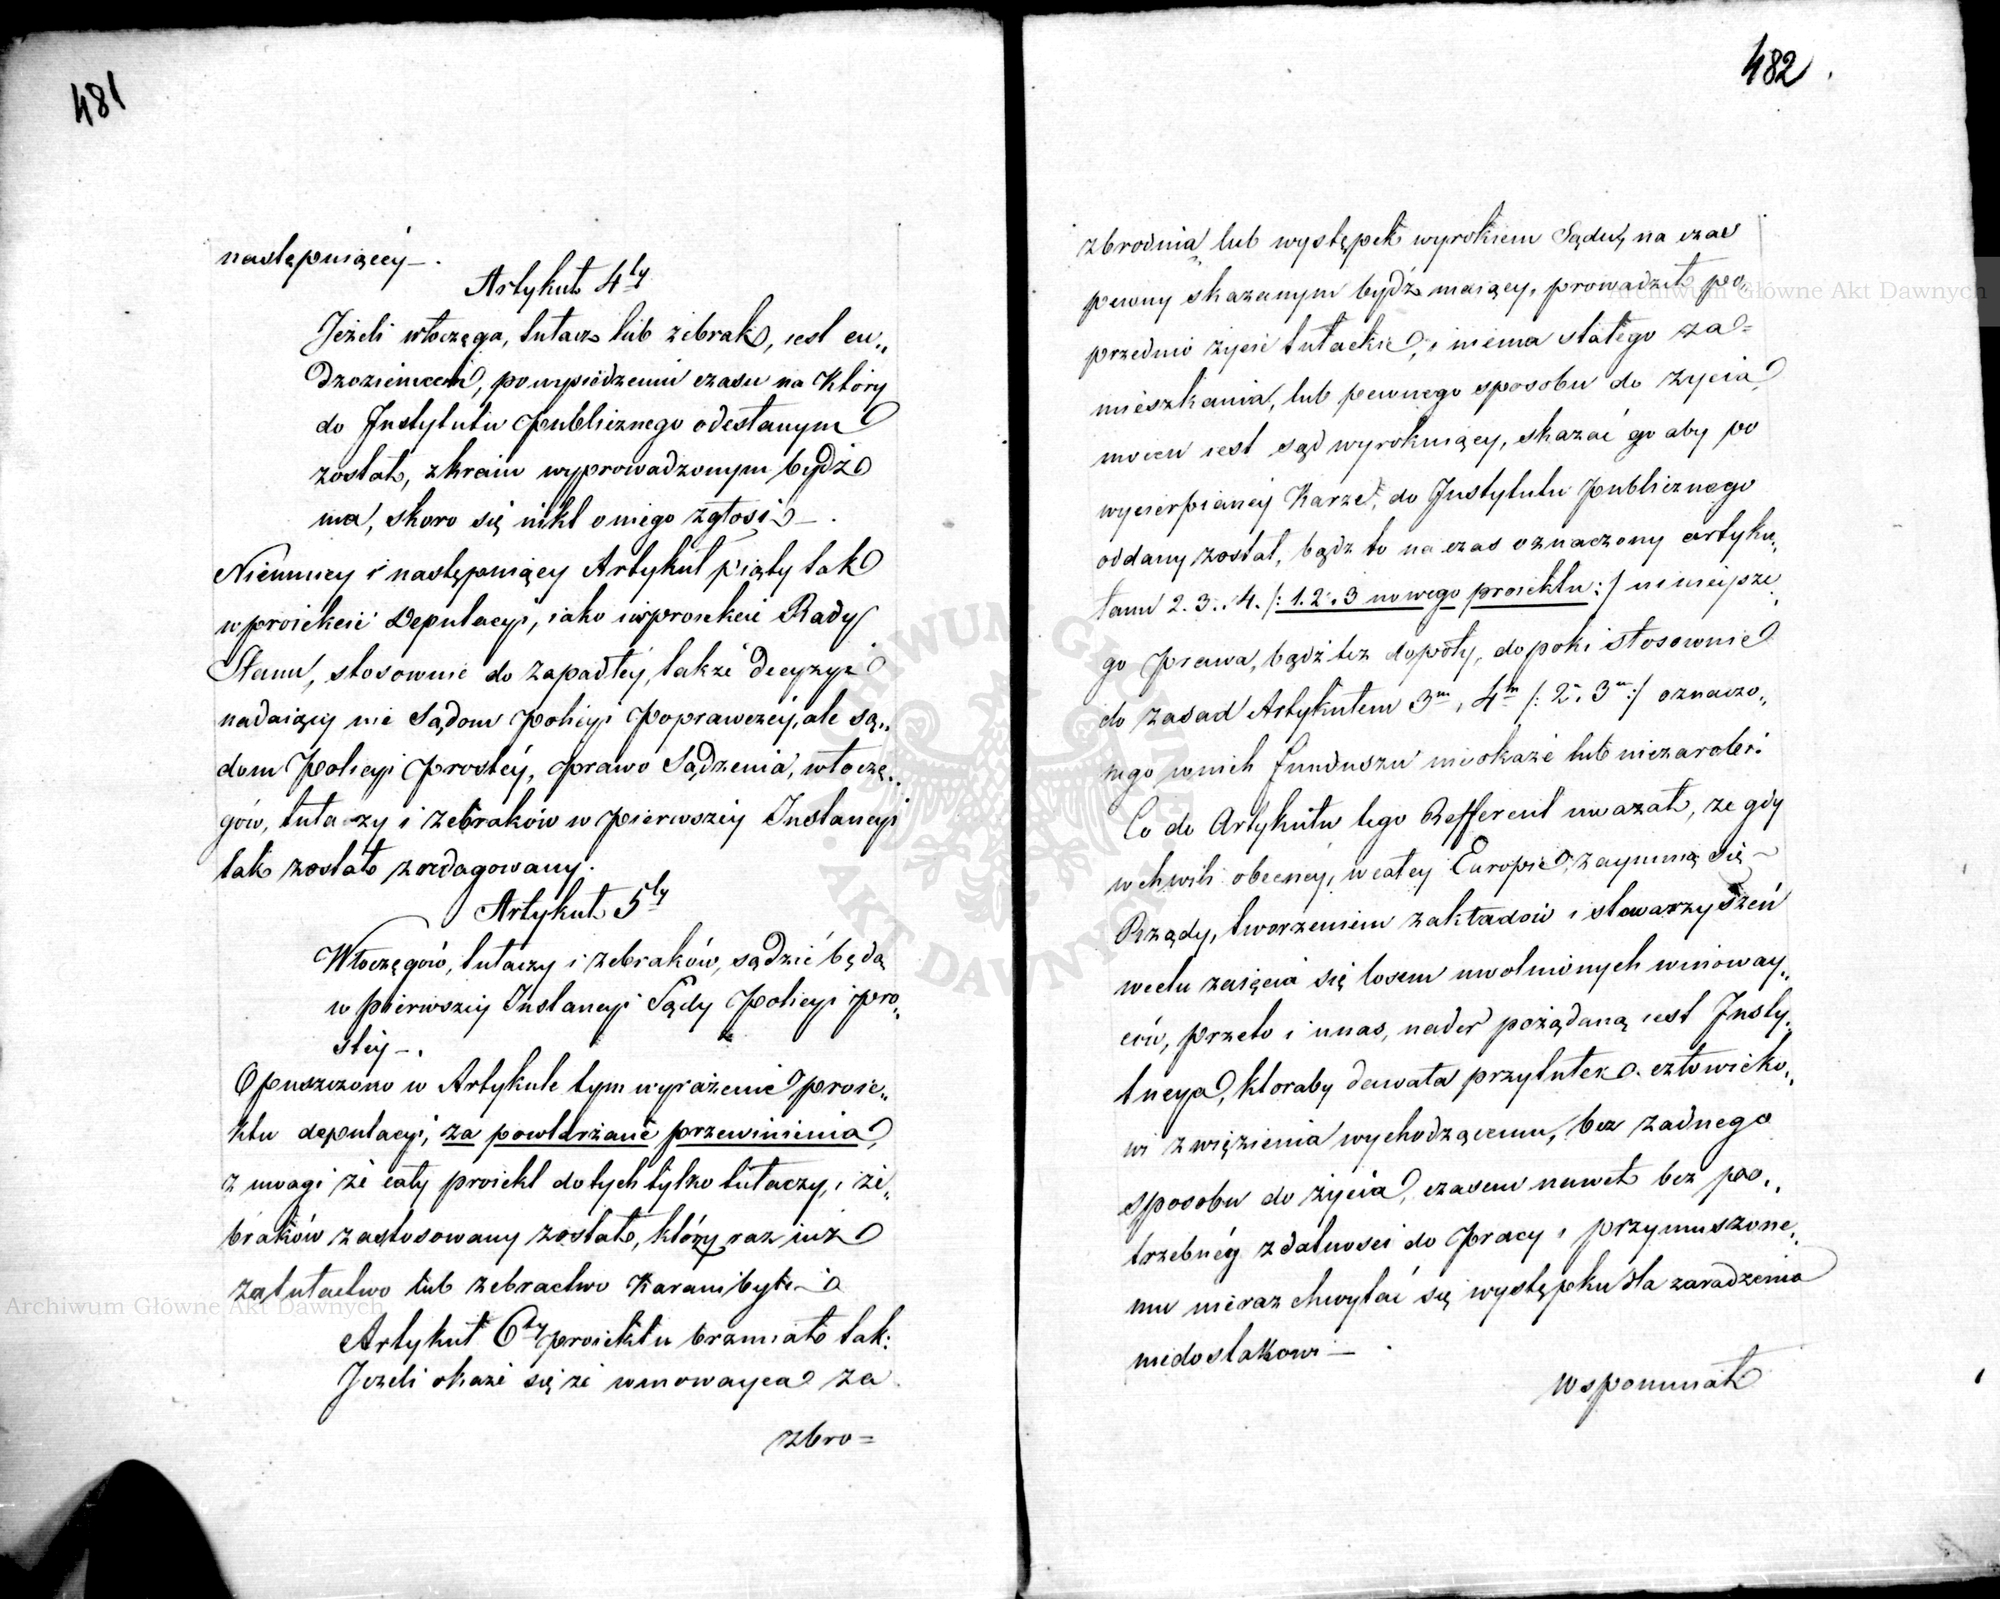 481
następuiącey –.
Artykuł 4ty
Jeżeli włoczęga, tułacz lub żebrak, iest cu„
dzoziemcem, po wyiściu czasu na który
do Instytutu publicznego odesłanym
został, z kraiu wyprowadzonym bydź
ma, skoro się nikt o niego zgłosi –.
Niemniey i następuiący Artykuł piąty tak
w proiekcie Deputacyi, iako i w proiekcie Rady
Stanu, stosownie do zapadłey także decyzyi
nadaiącey nie Sądom Policyi Poprawczey, ale są„
dom Policyi Prostey, prawo Sądzenia, włoczę„
gów, tułaczy i żebraków w pierwszey Instancyi
tak został zredagowany.
Artykuł 5ty
Włoczęgów, tułaczy i żebraków, sądzić będą
w pierwszey Instancyi Sądy Policyi pro„
stey –.
Opuszczono w Artykule tym wyrażenie proie„
ktu deputacyi, za powtarzane przewinienia,
z uwagi że cały proiekt do tych tylko tułaczy, i że„
braków zastosowany został, który raz iuż
za tułactwo lub żebractwo karani byli –
Artykuł 6ty proiektu brzmiał tak:
Jeżeli okaże się że winowayca za
zbro=
482.
zbrodnią lub występek wyrokiem Sądu, na czas
pewny skazanym bydź maiący, prowadził po„
przednio życie tułackie, i niema stałego za=
mieszkania, lub pewnego sposobu do życia
mocen iest sąd wyrokuiący, skazać go aby po
wycierpianey karze, do Instytutu publicznego
oddany został, bądź to na czas oznaczony artyku„
łami 2. 3. 4. /: 1. 2. 3 nowego proiektu :/ ninieysze„
go prawa, bądź też dopóty, dopoki stosownie
do zasad Artykułem 3m, 4m /: 2. 3m :/ oznaczo„
nego w nich funduszu nieokaże lub niezarobi.
Co do Artykułu tego Refferent uważał, że gdy
w chwili obecney, w całey Europie, zaymuią się –
Rządy, tworzeniem zakładów i stowarzyszeń
w celu zaięcia się losem uwolnionych winoway„
ców, przeto i u nas, nader pożądaną iest Insty„
tucya, ktoraby dawała przytułek człowieko„
wi z więzienia wychodzącemu, bez żadnego
sposobu do życia, czasem nawet bez po„
trzebnéy zdatności do pracy i przymuszone„
mu nieraz chwytać się występku dla zaradzenia
niedostatkowi –.
wspomniał
Archiwum Główne Akt Dawnych
Archiwum Główne Akt Dawnych
ARCHIWUM GŁÓWNE AKT DAWNYCH